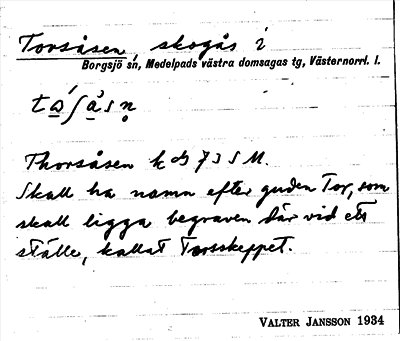 Torsåsen, skogås i
Borgsjö sn, Medelpads västra domsagas tg, Västernorrl. l.
Thorsåsen
Skall ha namn efter guden Tor, som
skall ligga begraven där vid ett
ställe, kallat Torsskeppet.
VALTER JANSSON 1934